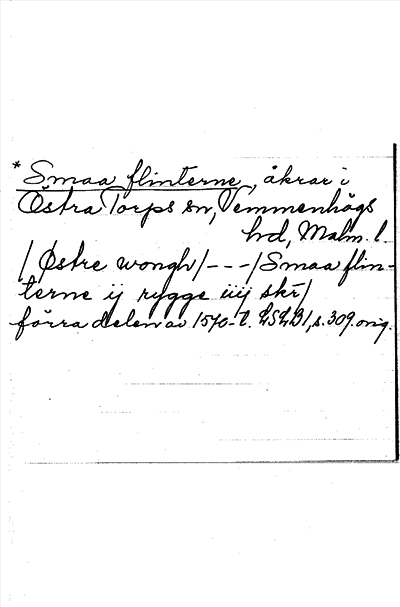 * Smaa flinterne, åkrar i
Östra Torps sn, Vemmenhögs
hd, Malm. l.
/Østre wongh/---/Smaa flin-
terne ij rygge iiij skr/
förra delen av 1570-t. LSLB1, s. 309. orig.